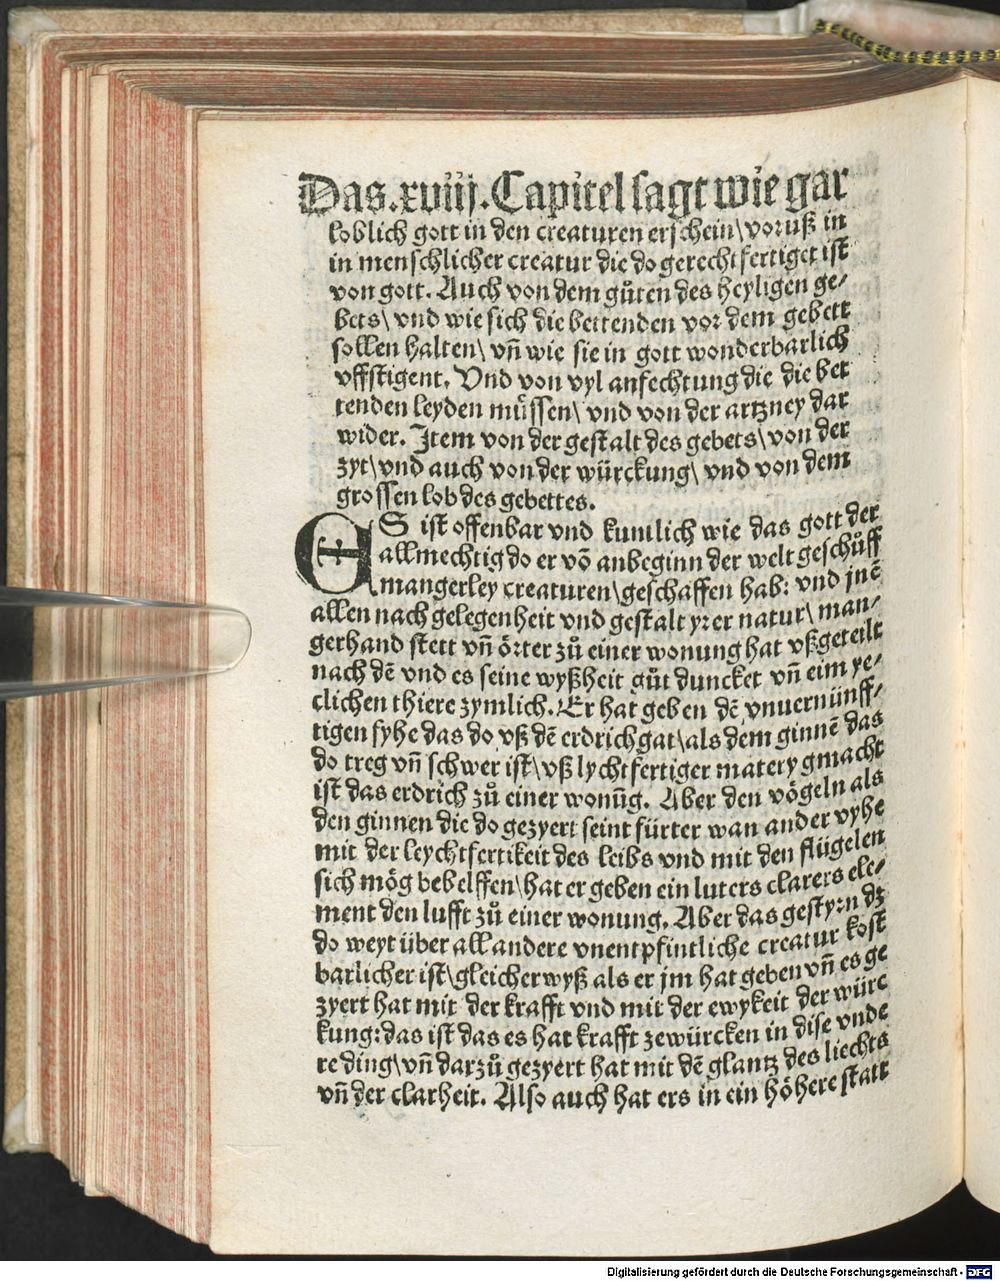 Das .xviij. Capitel sagt wie gar
loblich gott in den creaturen erschein\ voruß in
in menschlicher creatur die do gerechtfertiget ist
von gott. Auch von dem gůten des heyligen ge⸗
bets\ vnd wie sich die bettenden vor dem gebett
sollen halten\ vñ wie sie in gott wonderbarlich
vffstigent. Vnd von vyl anfechtung die die bet
tenden leyden müssen\ vnd von der artzney dar
wider. Item von der gestalt des gebets\ von der
zyt\ vnd auch von der würckung\ vnd von dem
grossen lob des gebettes.
ES ist offenbar vnd kuntlich wie das gott der
allmechtig do er võ anbeginn der welt geschůff
mangerley creaturen\ geschaffen hab: vnd jnẽ
allen nach gelegenheit vnd gestalt yrer natur\ man⸗
gerhand stett vñ örter zů einer wonung hat vßgeteilt
nach dẽ vnd es seine wyßheit gůt duncket vñ eim ye⸗
clichen thiere zymlich. Er hat geben dẽ vnuernünff⸗
tigen fyhe das do vß dẽ erdrich gat\ als dem ginnẽ das
do treg vñ schwer ist\ vß lychtfertiger matery gmacht
ist das erdrich zů einer wonũg. Aber den vögeln als
den ginnen die do gezyert seint fürter wan ander vyhe
mit der leychtfertikeit des leibs vnd mit den flügelen
sich mög behelffen\ hat er geben ein luters clarers ele⸗
ment den lufft zů einer wonung. Aber das gestyrn dz
do weyt über all andere vnentpfintliche creatur kost
barlicher ist\ gleicher wyß als er jm hat geben vñ es ge
zyert hat mit der krafft vnd mit der ewykeit der würc
kung: das ist das es hat krafft zewürcken in dise vnde
re ding\ vñ darzů gezyert hat mit dẽ glantz des liechts
vñ der clarheit. Also auch hat ers in ein höhere statt
Digitalisierung gefördert durch die Deutsche Forschungsgemeinschaft - DFG